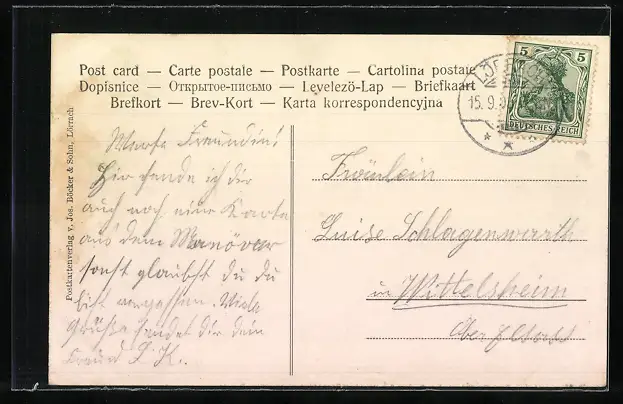 Post card — Carte postale — Postkarte — Cartolina postale
Dopisnice — Открытое-письмо — Levelező-Lap — Briefkaart
Brefkort — Brev-Kort — Karta korrespondencyjna
5 5
DEUTSCHES REICH
15.9.
Postkartenverlag v. Jos. Böcker & Sohn, Lörrach
Werthe Freundin!
Hier sende ich dir
auch noch eine Karte
aus dem Manöver
sonst glaubst du du
bist vergessen. Viele
Grüße sendet dir dein
Freund L. K.
Fräulein
Luise Schlagenwarth
in Wittelsheim
Ober Elsaß